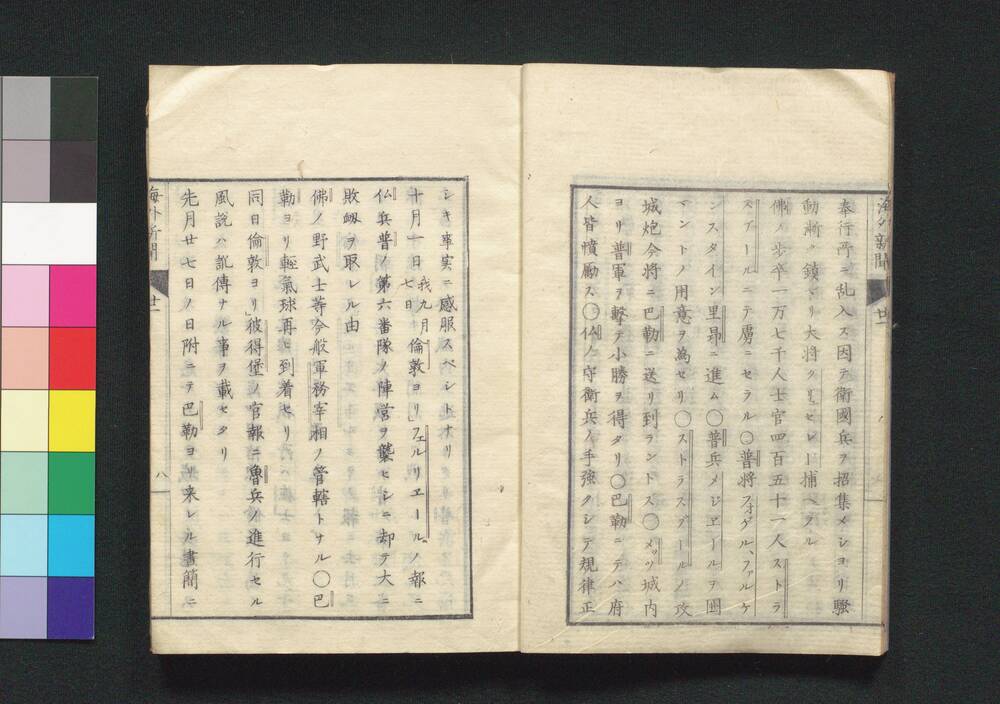 海外新聞
廿一
奉行所ニ乱入ス因テ衛國兵ヲ招集メシヨリ騒
動漸ク鎮マリ大将クリセレー捕ヘラル
佛ノ歩卒一万七千人士官四百五十一人ストラ
スブールニテ虜ニセラル〇普将フォゲル、ファルケ
ンスタイン里昂ニ進ム〇普兵メジエールヲ囲
マントノ用意ヲ為セリ〇ストラスブールノ攻
城炮今将ニ巴勒ニ送リ到ラントス〇メッツ城内
ヨリ普軍ヲ撃テ小勝ヲ得タリ〇巴勒ニテハ府
人皆憤励ス〇仏ノ守衛兵ノ手強クシテ規律正
シキ事実ニ感服スベシトナリ
十月一日我九月七日倫敦ヨリ」フェルリエールノ報ニ
仏兵普ノ第六番隊ノ陣営ヲ襲セシニ却テ大ニ
敗衂ヲ取レル由
佛ノ野武士等今般軍務宰相ノ管轄トナル〇巴
勒ヨリ軽氣球再ヒ到着セリ
同日倫敦ヨリ」彼得堡ノ官報ニ魯兵ノ進行セル
風説ハ訛傳ナル事ヲ載セタリ
先月廿七日ノ日附ニテ巴勒ヨリ来レル書簡ニ
海外新聞
廿一
八